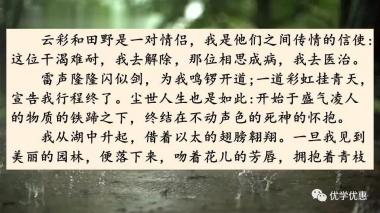 云彩和田野是一对情侣，我是他们之间传情的信使：
这位干渴难耐，我去解除，那位相思成病，我去医治。
雷声隆隆闪似剑，为我鸣锣开道；一道彩虹挂青天，
宣告我行程终了。尘世人生也是如此：开始于盛气凌人
的物质的铁蹄之下，终结在不动声色的死神的怀抱。
我从湖中升起，借着以太的翅膀翱翔。一旦我见到
美丽的园林，便落下来，吻着花儿的芳唇，拥抱着青枝
优学优惠